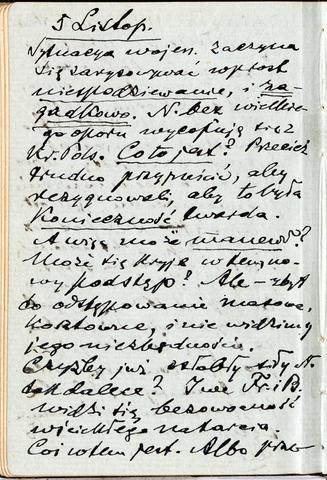 5 Listop.
Sytuacja wojen. zaczyna
się zarysowywać wprost
niespodziewanie, i za-
gadkowo. N. bez wielkie-
go oporu wycofują się z
Kr. Pols. Co to jest? Przecież
trudno przypuścić, aby
rezygnowali, aby to była
Konieczność twarda.
A więc może manewr?
Może się kryje w tem, no-
wy podstęp? Ale – zbyt
to odstępowanie masowe,
kosztowne, i nie widzimy
jego niezbędności.
Czyżby już osłabły siły N.
tak dalece? I we Fr. i B.
widzi się bezowocność
wściekłego natarcia.
Coś w tem jest. Albo